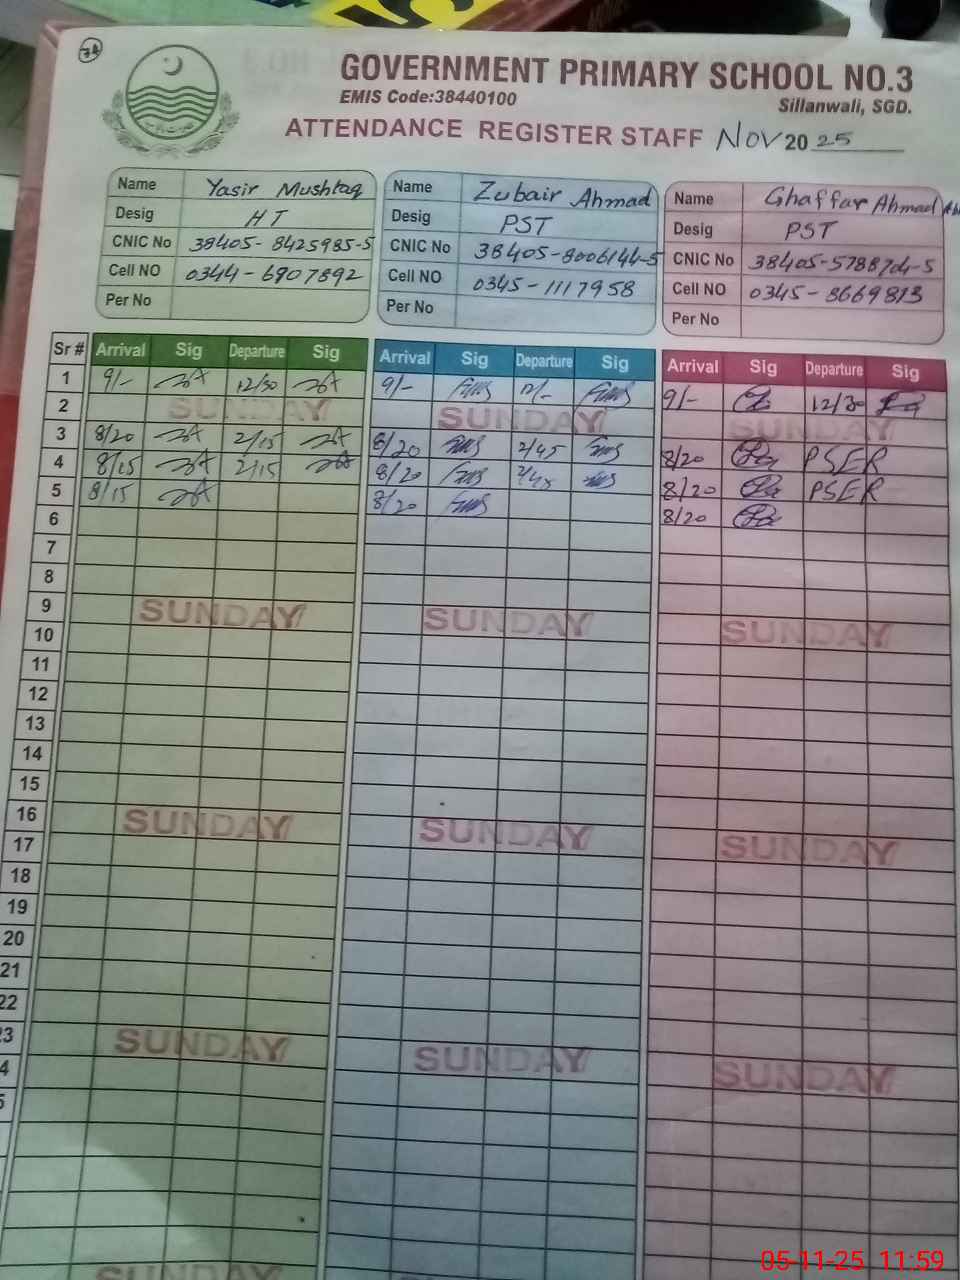 GOVERNMENT PRIMARY SCHOOL NO.3
EMIS Code:38440100
Sillanwali, SGD.
ATTENDANCE REGISTER STAFF Nov 2025
Name Yasir Mushtaq
Desig HT
CNIC No 38405-8425985-5
Cell NO 0344-6907892
Per No
Name Zubair Ahmad
Desig PST
CNIC No 38405-8006144-5
Cell NO 0345-1117958
Per No
Name Ghaffar Ahmad
Desig PST
CNIC No 38405-5788704-5
Cell NO 0345-8669813
Per No
Sr # Arrival Sig Departure Sig Arrival Sig Departure Sig Arrival Sig Departure Sig
1 9/- 12/30 9/- 12/- 9/- 12/30
2 SUNDAY SUNDAY SUNDAY
3 8/20 2/15 8/20 2/45 8/20 PSER
4 8/15 2/15 8/20 2/45 8/20 PSER
5 8/15 8/20 8/20
6
7
8
9 SUNDAY SUNDAY SUNDAY
10
11
12
13
14
15
16 SUNDAY SUNDAY SUNDAY
17
18
19
20
21
22
23 SUNDAY SUNDAY SUNDAY
4
5
SUNDAY SUNDAY SUNDAY
05-11-25 11:59